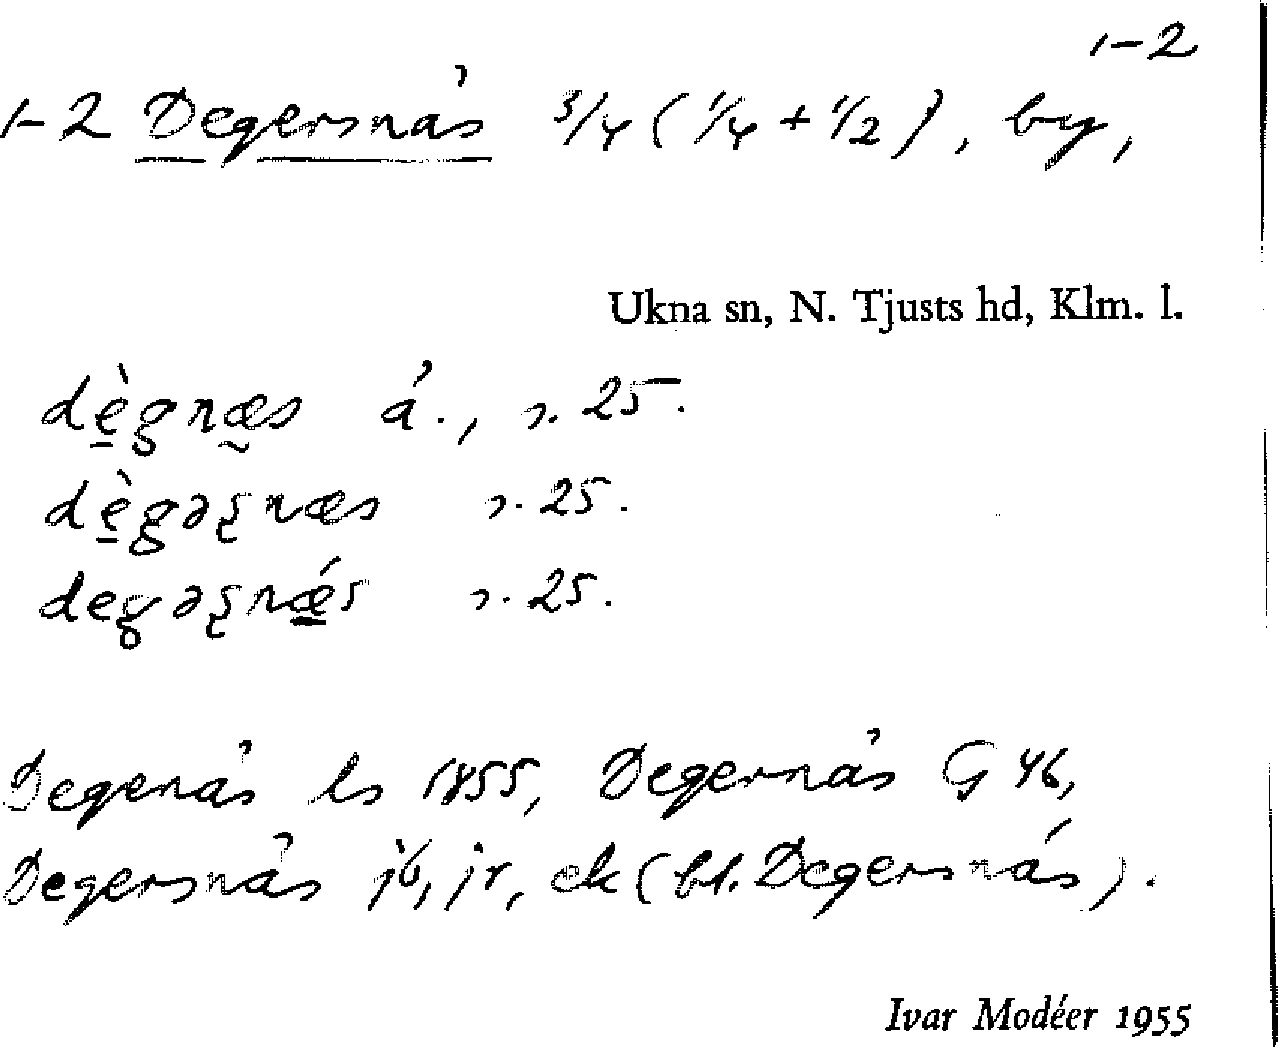 1-2
1-2 Degersnäs 3/4 (1/4 + 1/2), by,
Ukna sn, N. Tjusts hd, Klm. l.
dègnæs ä., s. 25.
dègəʂnæs s. 25.
degəʂnǽs s. 25.
Degenäs ls 1855, Degernäs G 46,
Degersnäs jb, jr, ek (bl. Degersnäs).
Ivar Modéer 1955